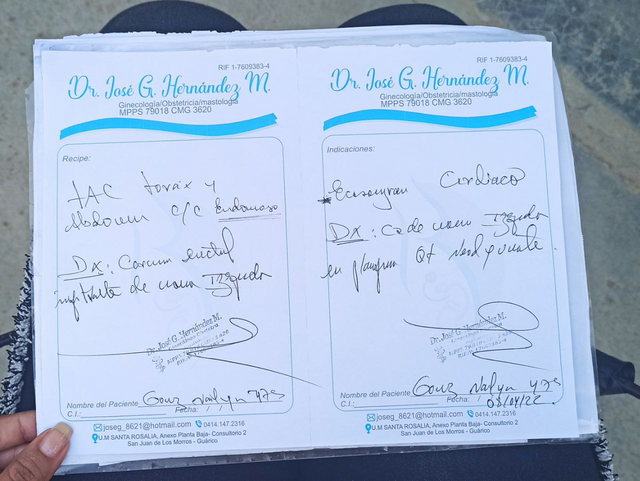 RIF 1-7609383-4
Dr. José G. Hernández M.
Ginecología/Obstetricia/mastología
MPPS 79018 CMG 3620
Recipe:
TAC torax y
Abdomen c/c Endovenoso
DX: Carcinoma ductal
infiltrante de mama Izquierda
Dr. José G. Hernández M.
Nombre del Paciente
C.I.: Fecha:
joseg_8621@hotmail.com 0414.147.2316
U.M SANTA ROSALIA, Anexo Planta Baja- Consultorio 2
San Juan de Los Morros - Guárico
RIF 1-7609383-4
Dr. José G. Hernández M.
Ginecología/Obstetricia/mastología
MPPS 79018 CMG 3620
Indicaciones:
Cardiaco
DX: Ca de mama
en QT
Dr. José G. Hernández M.
Nombre del Paciente
C.I.: Fecha:
joseg_8621@hotmail.com 0414.147.2316
U.M SANTA ROSALIA, Anexo Planta Baja- Consultorio 2
San Juan de Los Morros - Guárico